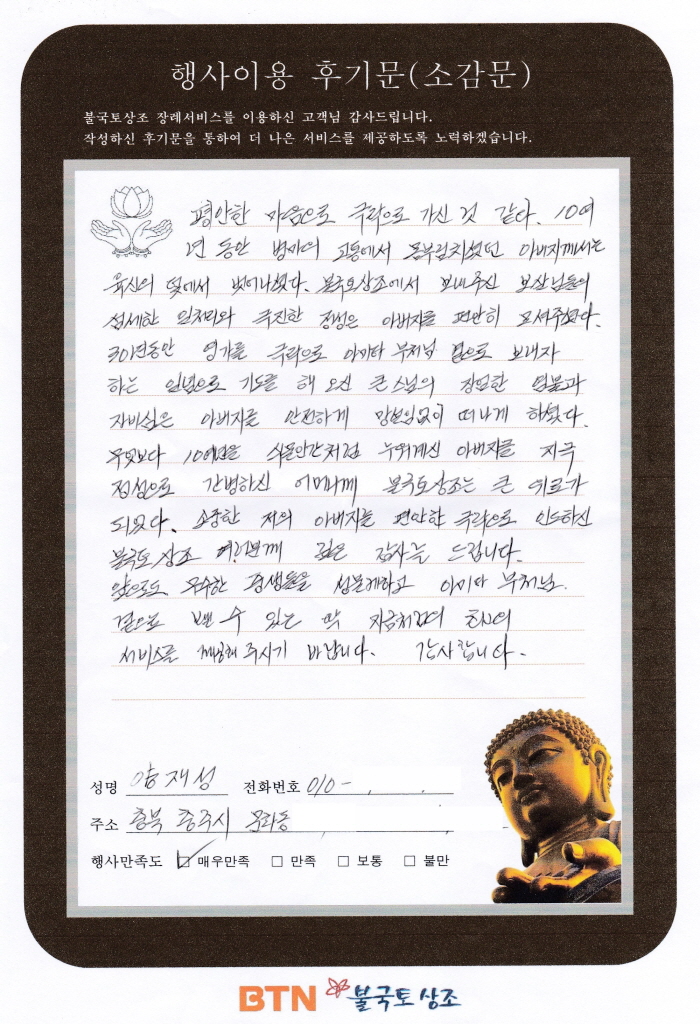 행사이용 후기문(소감문)
불국토상조 장례서비스를 이용하신 고객님 감사드립니다.
작성하신 후기문을 통하여 더 나은 서비스를 제공하도록 노력하겠습니다.
평안한 마음으로 극락으로 가신 것 같다. 10여
년 동안 병마의 고통에서 몸부림치셨던 아버지께서는
육신의 덫에서 벗어나셨다. 불국토상조에서 보내주신 보살님들의
섬세한 일처리와 극진한 정성은 아버지를 편안히 모셔주셨다.
30여년동안 영가를 극락으로 아미타 부처님 곁으로 보내자
하는 일념으로 기도를 해 오신 큰스님의 장엄한 염불과
자비심은 아버지를 안전하게 망설임없이 떠나게 하셨다.
무엇보다 10여년을 식물인간처럼 누워계신 아버지를 지극
정성으로 간병하신 어머니께 불국토상조는 큰 위로가
되었다. 소중한 저의 아버지를 편안한 극락으로 인도하신
불국토 상조 여러분께 깊은 감사를 드립니다.
앞으로도 무수한 중생들을 성불케하고 아미타 부처님
곁으로 보낼 수 있는 지금처럼의
서비스를 해 주시기 바랍니다. 감사합니다.
성명 양재성 전화번호 010-
주소 충북 충주시 문화동
행사만족도 ☑ 매우만족 □ 만족 □ 보통 □ 불만
BTN 불국토상조